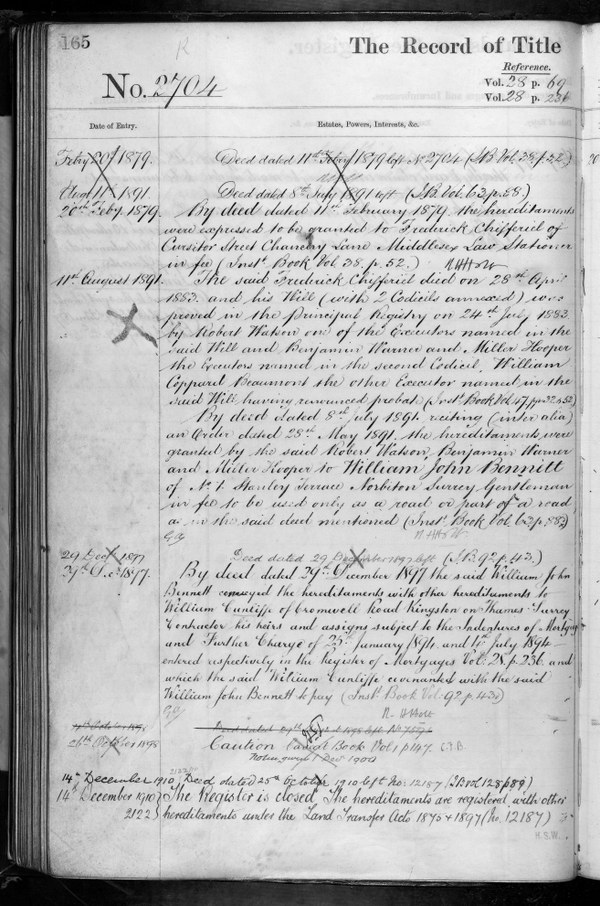 165
The Record of Title
Reference.
Vol. 28 p. 69
Vol. 28 p. 236
No. 2704
Date of Entry.
Estates, Powers, Interests, &c.
Feby 20th 1879. Deed dated 11th Feby 1879 left No 2704 (I.B. Vol. 38. p. 52.)
Augt 11th 1891. Deed dated 8th July 1891 left (I.B. Vol. 63. p. 88.)
20th Feby. 1879. By deed dated 11th February 1879 the hereditaments
were expressed to be granted to Frederick Chifferiel of
Cursitor Street Chancery Lane Middlesex Law Stationer
in fee (Inst. Book Vol. 38. p. 52.)
11th August 1891. The said Frederick Chifferiel died on 28th April
1883 and his Will (with 2 Codicils annexed) was
proved in the Principal Registry on 24th July 1883
by Robert Watson one of the Executors named in the
said Will and Benjamin Warner and Miller Hooper
the Executors named in the second Codicil, William
Coppard Beaumont the other Executor named in the
said Will having renounced probate (Inst. Book Vol. 47. pp.
By deed dated 8th July 1891 reciting (inter alia)
an Order dated 28th May 1891 the hereditaments were
granted by the said Robert Watson, Benjamin Warner
and Miller Hooper to William John Bennett
of No. 1 Stanley Terrace Norbiton Surrey Gentleman
in fee to be used only as a road or part of a road
as in the said deed mentioned (Inst. Book Vol. 63. p. 88.)
29 Decr 1897 Deed dated 29 December 1897 left (I.B. 92. p. 43.)
29th Dec. 1897. By deed dated 29th December 1897 the said William John
Bennett conveyed the hereditaments with other hereditaments to
William Cunliffe of Cromwell Road Kingston on Thames Surrey
Contractor his heirs and assigns subject to the Indentures of Mortgage
and Further Charge of 25th January 1894 and July 1894
entered respectively in the Register of Mortgages Vol. 28. p. 236. and
which the said William Cunliffe covenanted with the said
William John Bennett to pay (Inst. Book Vol. 92 p. 43.)
26th October 1898 Caution Caution Book Vol 1 p 147.
14th December 1910 Deed dated 25th October 1910 left No. 12187 (I.B. Vol. 128 p 89)
14th December 1910 The Register is closed, The hereditaments are registered with other
2122 hereditaments under the Land Transfer Acts 1875 & 1897 (No. 12187)
H.S.W.